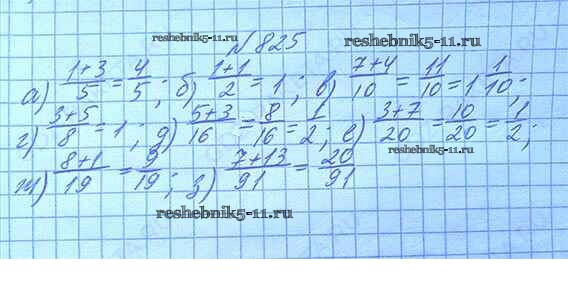 reshebnik5-11.ru
№ 825 reshebnik5-11.ru
а) (1+3)/5 = 4/5; б) (1+1)/2 = 1; в) (7+4)/10 = 11/10 = 1 1/10;
г) (3+5)/8 = 1; д) (5+3)/16 = 8/16 = 1/2; е) (3+7)/20 = 10/20 = 1/2;
reshebnik5-11.ru
ж) (8+1)/19 = 9/19; з) (7+13)/91 = 20/91
reshebnik5-11.ru